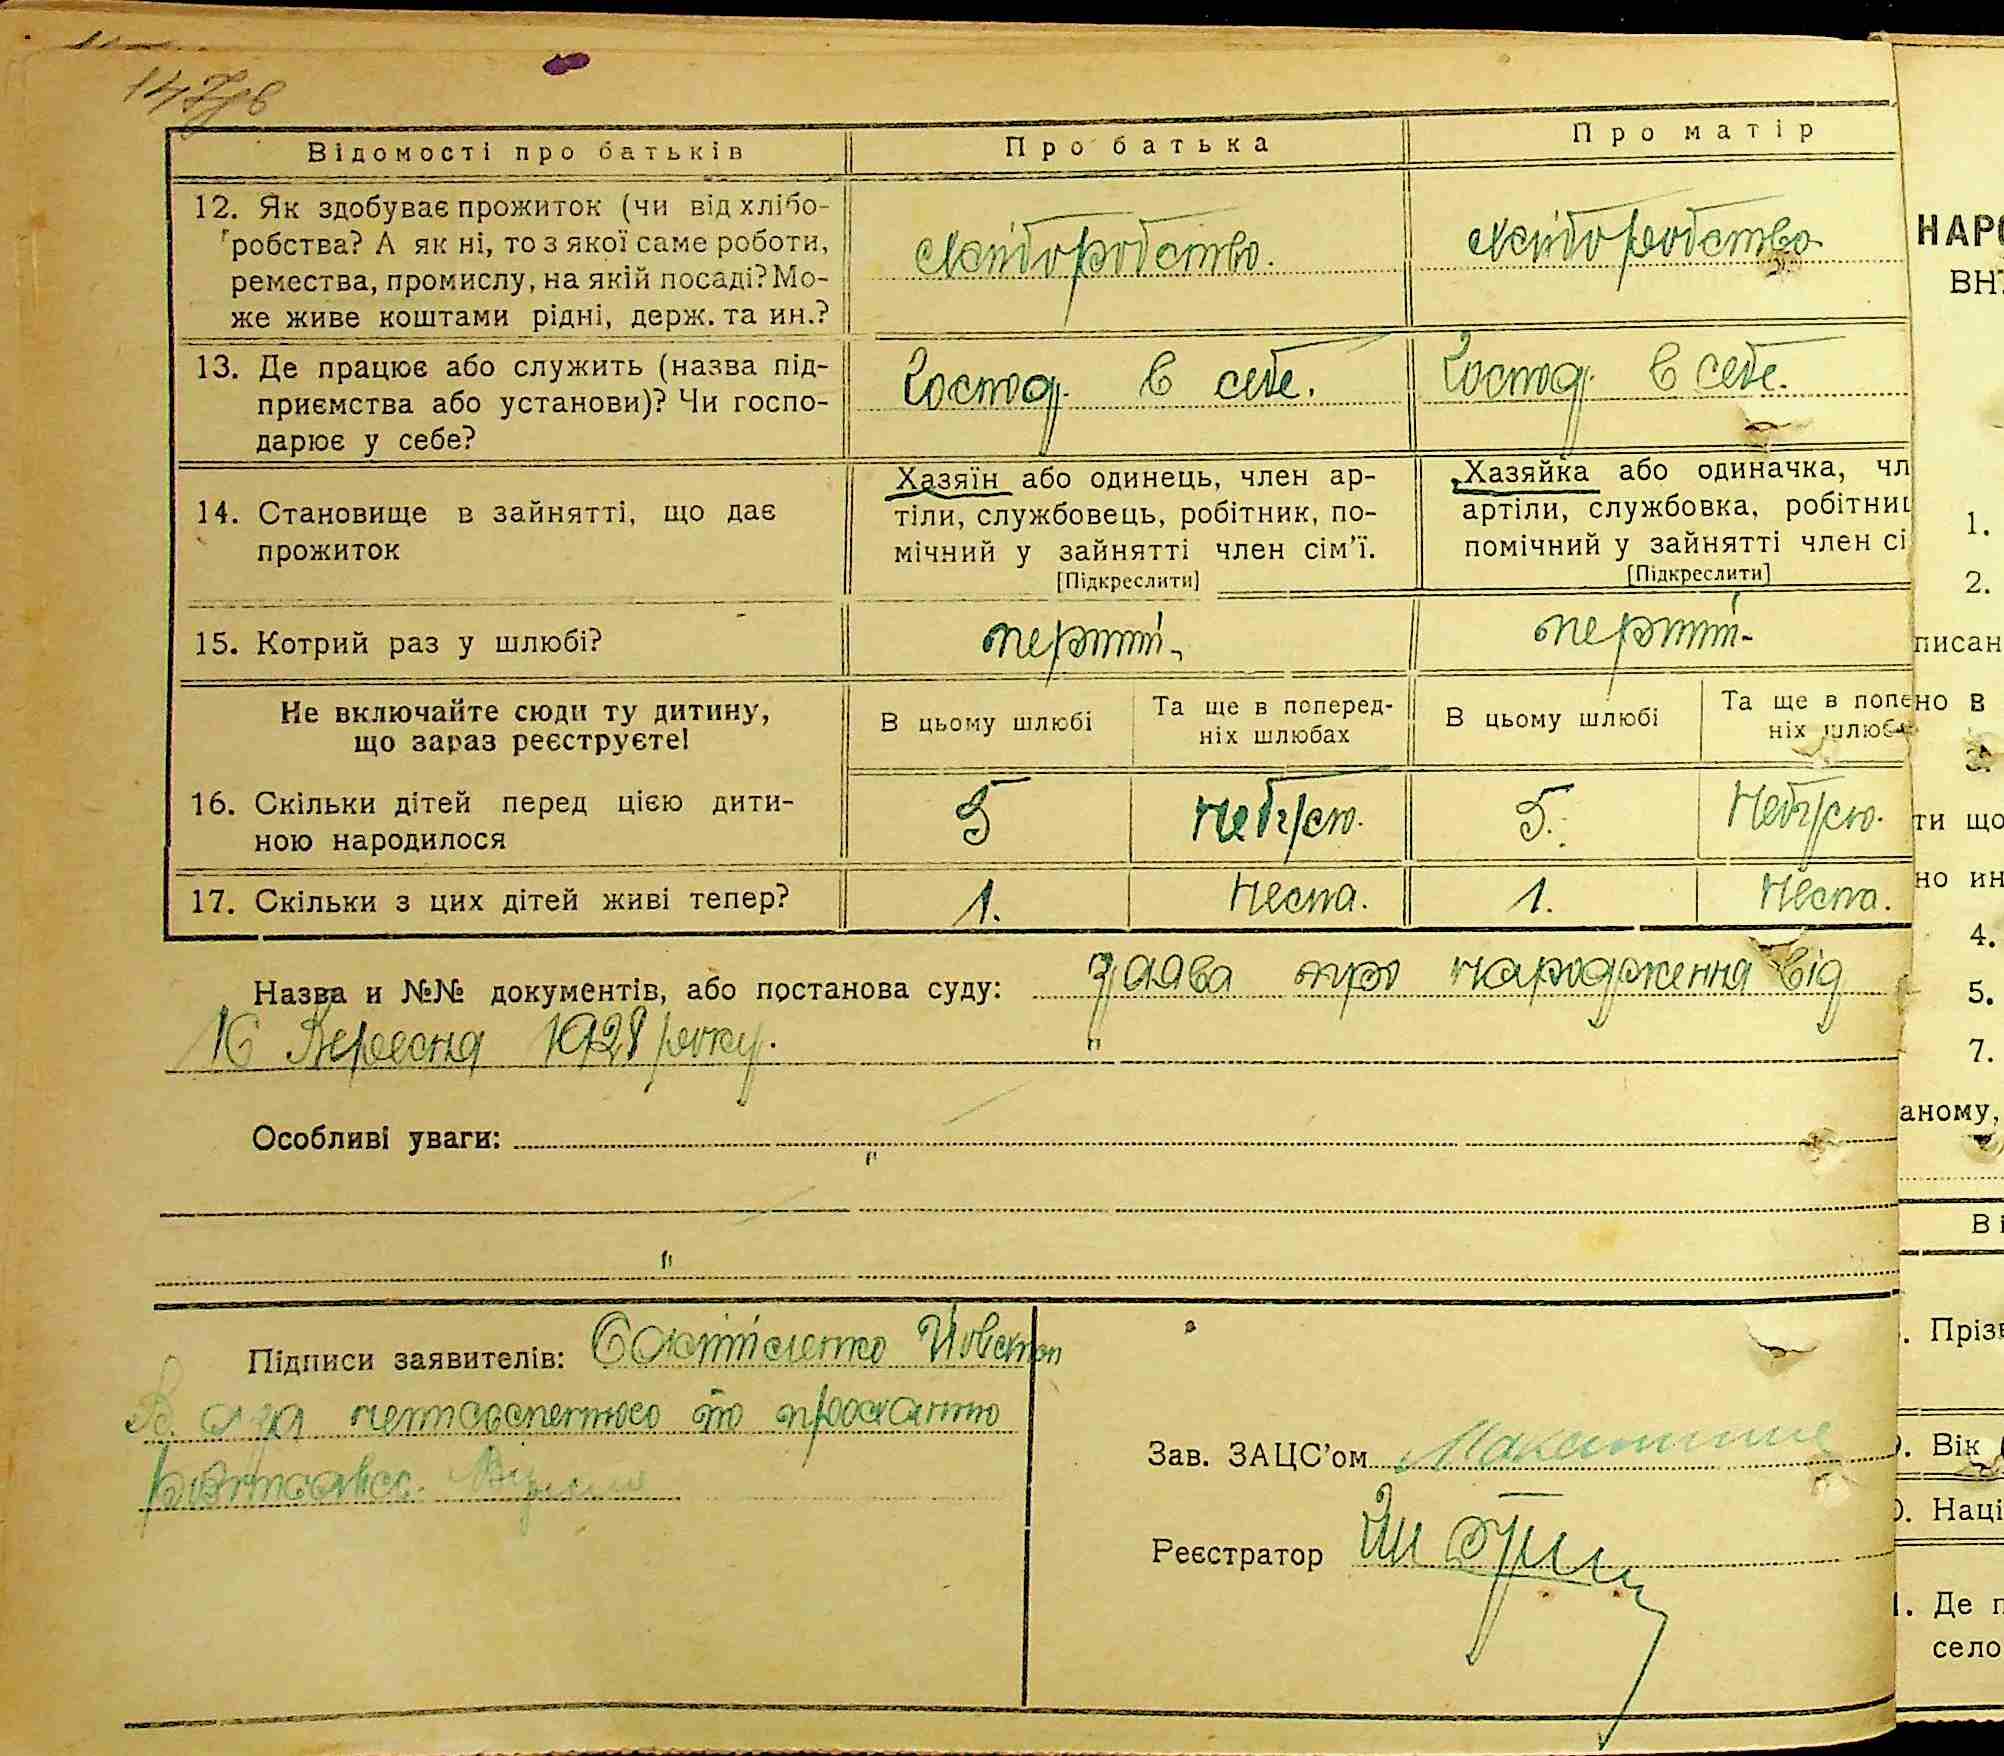 147зв
Відомості про батьків
Про батька
Про матір
12. Як здобуває прожиток (чи від хлібо-
робства? А як ні, то з якої саме роботи,
ремества, промислу, на якій посаді? Мо-
же живе коштами рідні, держ. та ин.?
хліборобство.
хліборобство
13. Де працює або служить (назва під-
приємства або установи)? Чи госпо-
дарює у себе?
Господ. в себе.
Господ. в себе.
14. Становище в зайнятті, що дає
прожиток
Хазяїн або одинець, член ар-
тіли, службовець, робітник, по-
мічний у зайнятті член сім'ї.
[Підкреслити]
Хазяйка або одиначка, чл
артіли, службовка, робітниц
помічний у зайнятті член сі
[Підкреслити]
15. Котрий раз у шлюбі?
перший
перший
Не включайте сюди ту дитину,
що зараз реєструєте!
В цьому шлюбі
Та ще в поперед-
ніх шлюбах
В цьому шлюбі
Та ще в попе
ніх шлюб
16. Скільки дітей перед цією дити-
ною народилося
5
Небуло.
5.
Небуло.
17. Скільки з цих дітей живі тепер?
1.
Нема.
1.
Нема.
Назва и №№ документів, або постанова суду: Заява про народження від
16 Вересня 1928 року.
Особливі уваги:
Підписи заявителів:
А за неписьменного по проханню
Зав. ЗАЦС'ом
Реєстратор
НАРО
ВНТ
1.
2.
писан
но в
3.
ти що
но ин
4.
5.
7.
аному,
Ві
Прізв
Вік
Наці
Де п
село